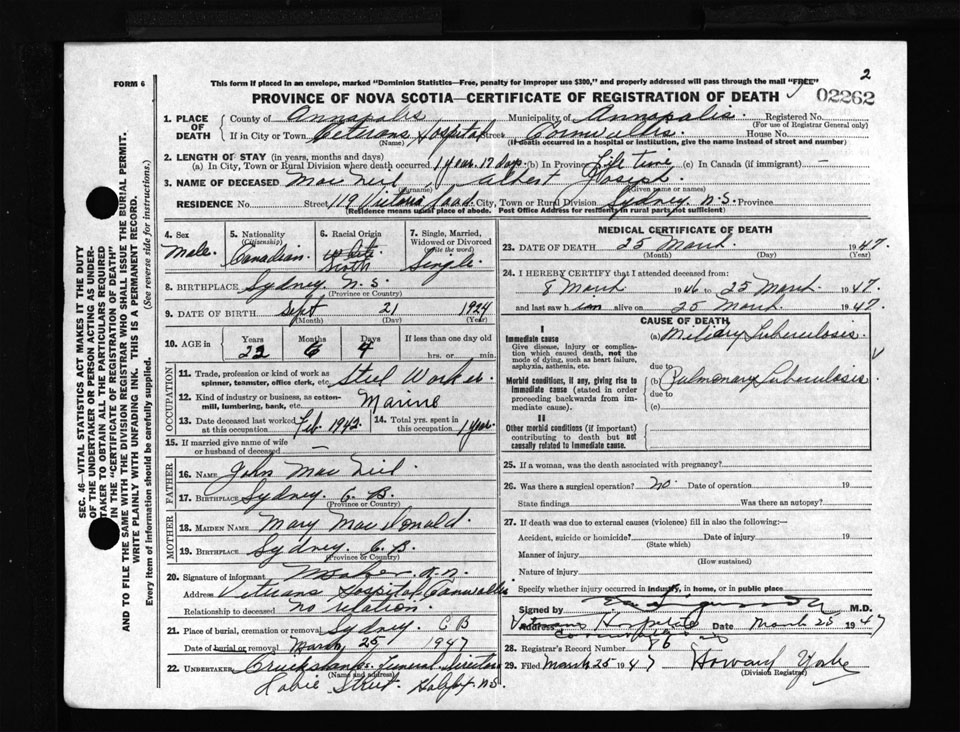 2
FORM 6
This form if placed in an envelope, marked "Dominion Statistics—Free, penalty for improper use $300," and properly addressed will pass through the mail "FREE"
PROVINCE OF NOVA SCOTIA—CERTIFICATE OF REGISTRATION OF DEATH
02262
1. PLACE OF DEATH
County of Annapolis Municipality of Annapolis. Registered No.
(For use of Registrar General only)
If in City or Town Veterans Hospital Street Cornwallis. House No.
(Name) (If death occurred in a hospital or institution, give the name instead of street and number)
2. LENGTH OF STAY (in years, months and days)
(a) In City, Town or Rural Division where death occurred 1 year. 17 days. (b) In Province Life time (c) In Canada (if immigrant) —
3. NAME OF DECEASED Mac Neil Albert Joseph.
(Surname) (Given name or names)
RESIDENCE No. Street 119 Victoria Road City, Town or Rural Division Sydney. N.S. Province
(Residence means usual place of abode. Post Office Address for residents in rural parts not sufficient)
4. Sex
Male.
5. Nationality
(Citizenship)
Canadian.
6. Racial Origin
White
7. Single, Married, Widowed or Divorced
(write the word)
Single.
8. BIRTHPLACE Sydney N.S.
(Province or Country)
9. DATE OF BIRTH Sept 21 1924
(Month) (Day) (Year)
10. AGE in
Years Months Days If less than one day old
22 6 4 hrs. or min.
OCCUPATION
11. Trade, profession or kind of work as spinner, teamster, office clerk, etc. Steel Worker.
12. Kind of industry or business, as cotton-mill, lumbering, bank, etc. Marine
13. Date deceased last worked at this occupation Feb. 1942. 14. Total yrs. spent in this occupation 1 year.
15. If married give name of wife or husband of deceased —
FATHER
16. NAME John Mac Neil.
17. BIRTHPLACE Sydney. C.B.
(Province or Country)
MOTHER
18. MAIDEN NAME Mary Mac Donald.
19. BIRTHPLACE Sydney. C.B.
(Province or Country)
20. Signature of informant R.N.
Address Veterans Hospital Cornwallis
Relationship to deceased no relation.
21. Place of burial, cremation or removal Sydney. C B
Date of burial or removal March 25 1947
22. UNDERTAKER Funeral Directors
(Name and address)
Street. Halifax N.S.
MEDICAL CERTIFICATE OF DEATH
23. DATE OF DEATH 25 March. 1947.
(Month) (Day) (Year)
24. I HEREBY CERTIFY that I attended deceased from:
8 March 1946 to 25 March. 1947.
and last saw him alive on 25 March. 1947.
CAUSE OF DEATH
I
Immediate cause
Give disease, injury or complication which caused death, not the mode of dying, such as heart failure, asphyxia, asthenia, etc.
(a) Miliary Tuberculosis.
due to
Morbid conditions, if any, giving rise to immediate cause (stated in order proceeding backwards from immediate cause).
(b) Pulmonary Tuberculosis
due to
(c)
II
Other morbid conditions (if important) contributing to death but not causally related to immediate cause.
25. If a woman, was the death associated with pregnancy?
26. Was there a surgical operation? No. Date of operation 19
State findings Was there an autopsy?
27. If death was due to external causes (violence) fill in also the following:—
Accident, suicide or homicide? Date of injury 19
(State which)
Manner of injury
(How sustained)
Nature of injury
Specify whether injury occurred in industry, in home, or in public place
Signed by M.D.
Address Veterans Hospital Date March 25 1947
Cornwallis
28. Registrar's Record Number 86
29. Filed March 25 1947 Howard Yorke
(Division Registrar)
SEC. 46—VITAL STATISTICS ACT MAKES IT THE DUTY
OF THE UNDERTAKER OR PERSON ACTING AS UNDER-
TAKER TO OBTAIN ALL THE PARTICULARS REQUIRED
IN THE "CERTIFICATE OF REGISTRATION OF DEATH"
AND TO FILE THE SAME WITH THE DIVISION REGISTRAR WHO SHALL ISSUE THE BURIAL PERMIT.
WRITE PLAINLY WITH UNFADING INK. THIS IS A PERMANENT RECORD.
Every item of information should be carefully supplied. (See reverse side for instructions.)